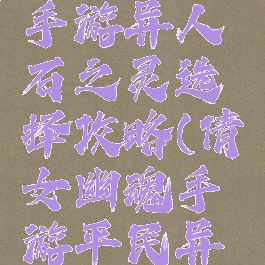 手游异人
石之灵选
择攻略(倩
女幽魂手
游平民异